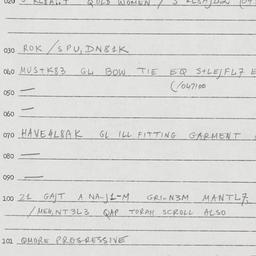 020 QULD WOMEN /
030 ROK /SPU,DN81K
040 MUS+K83 GL BOW TIE EQ
(/047100
050 —
060 —
070 HAVE4L8AK GL ILL FITTING GARMENT
080 —
090 —
100 21 GAJT A NA-J1-M GRI-N3M MANTL7,
/MEH,NT3L3 QAP TORAH SCROLL ALSO
101 QMORE PROGRESSIVE